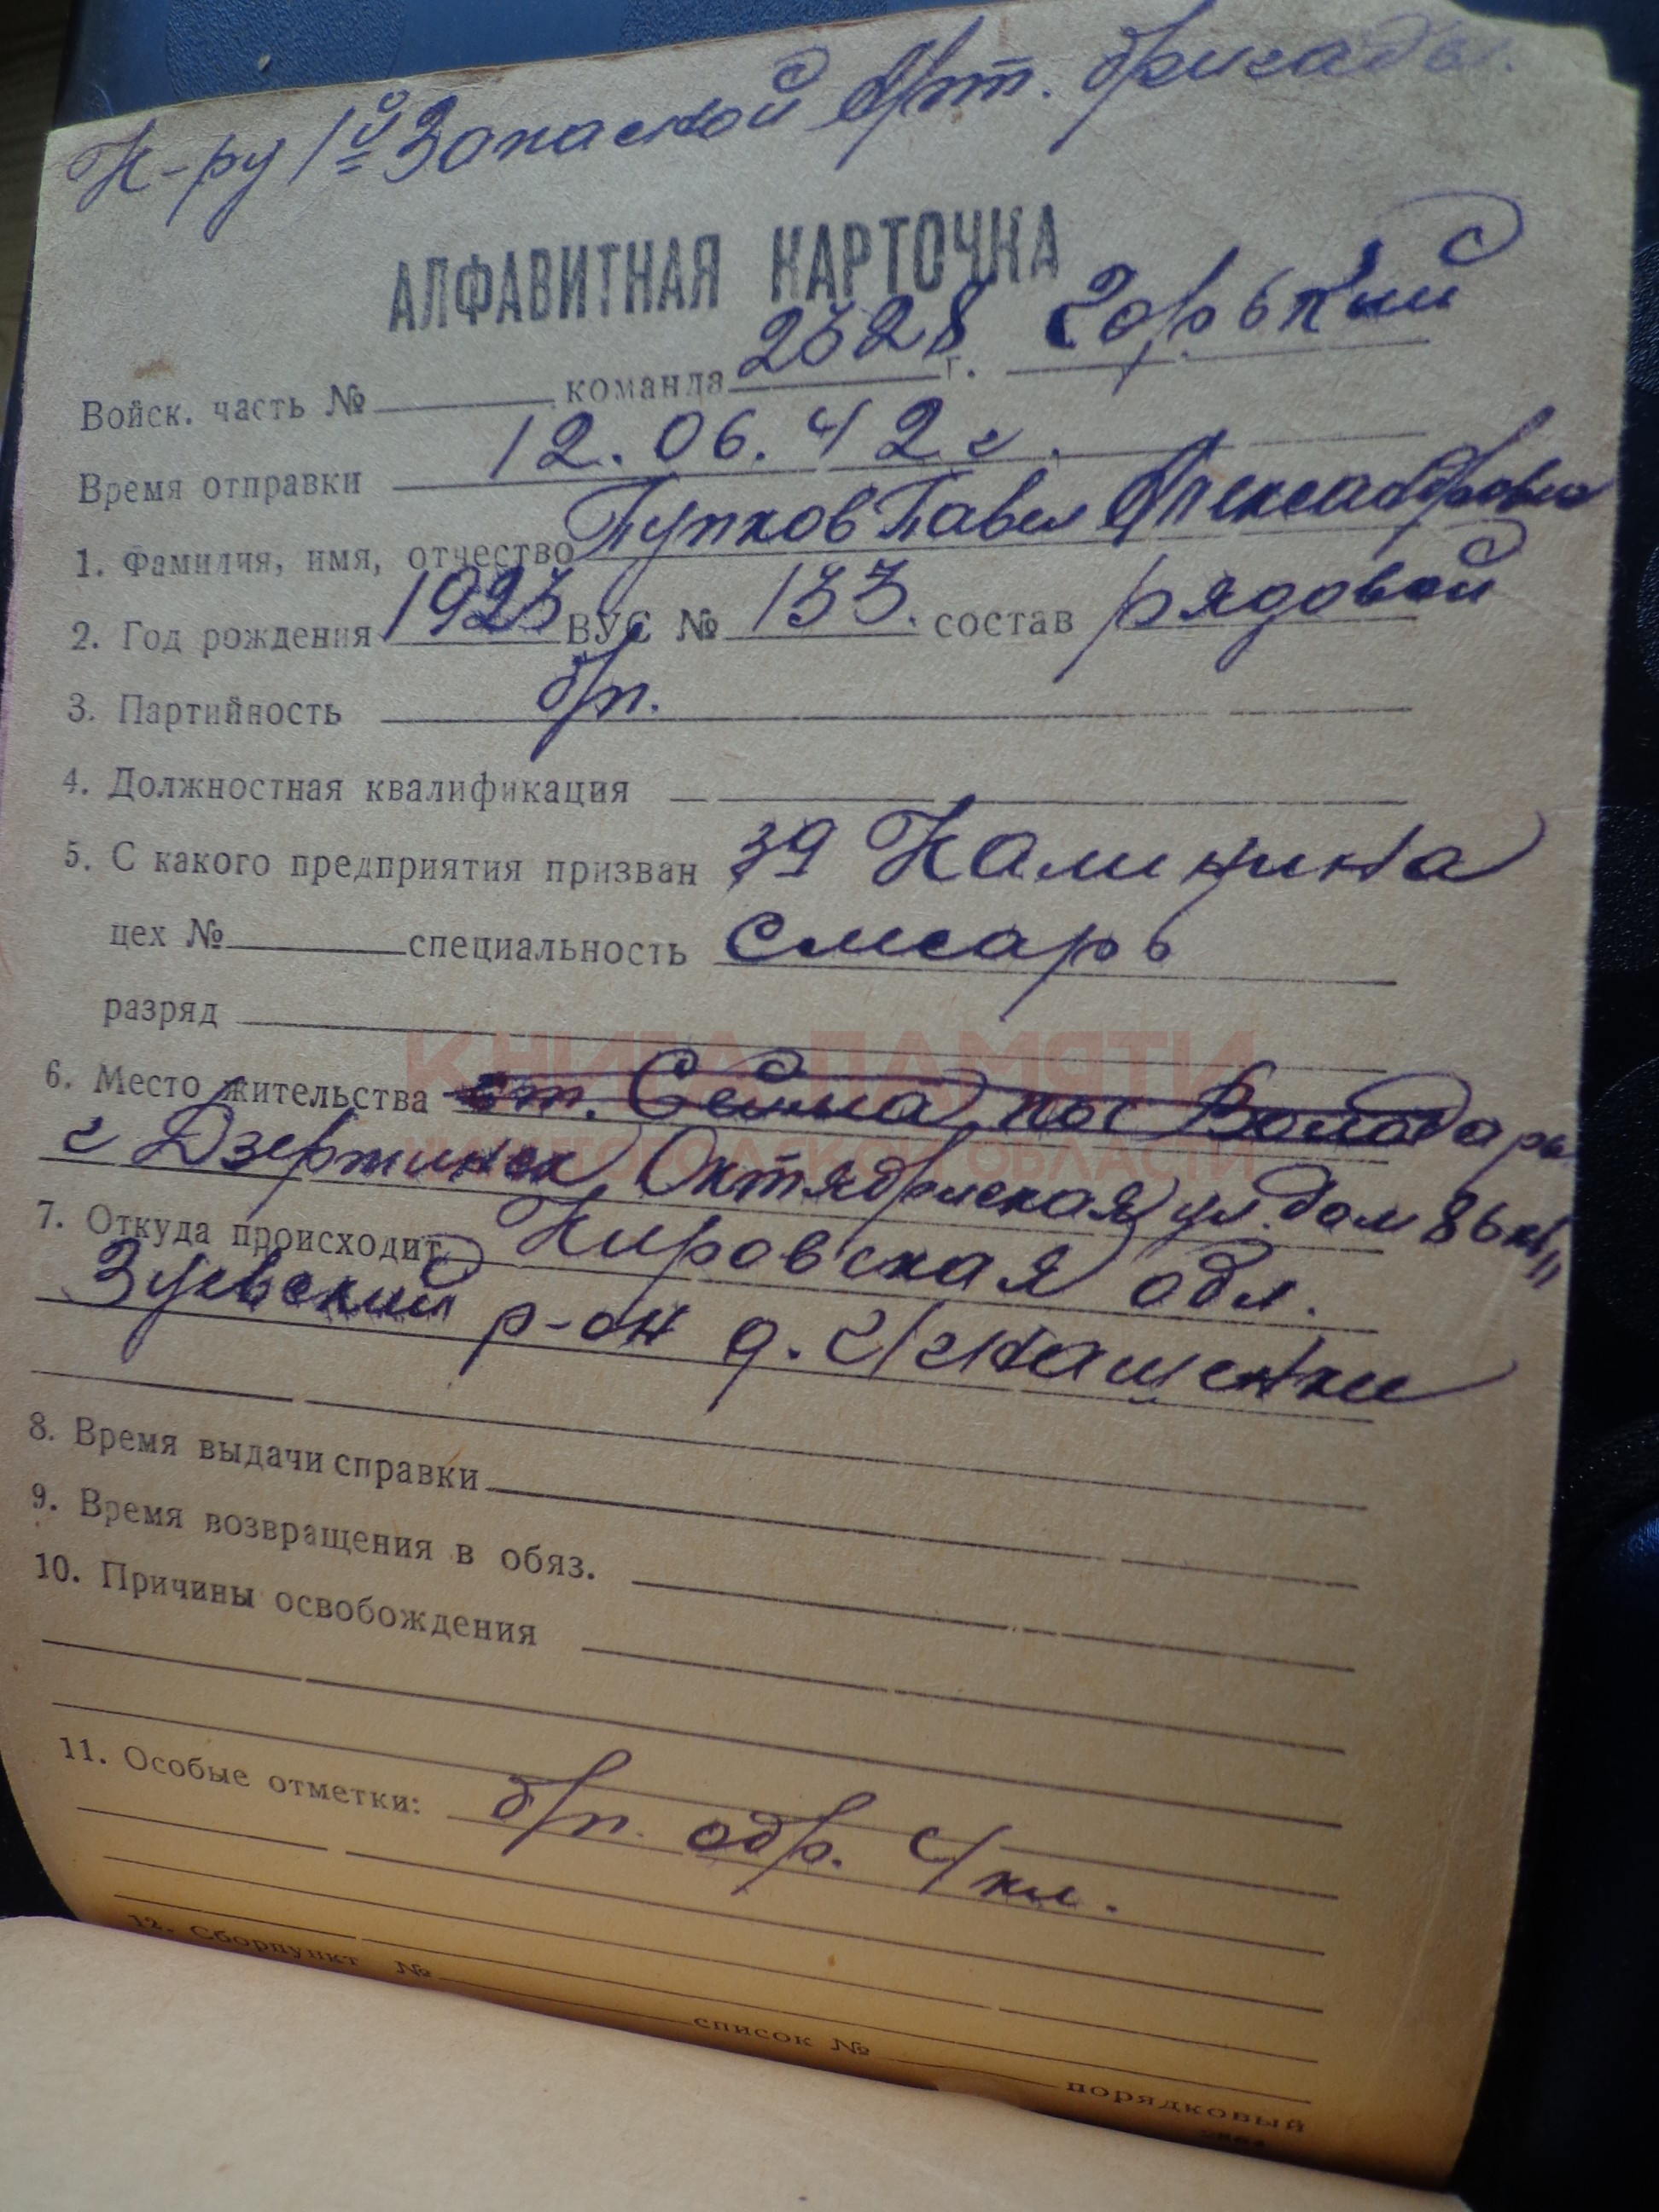 К-ру 1й Запасной Арт. бригады.
АЛФАВИТНАЯ КАРТОЧКА
Войск. часть № команда 2328 г. Горький
Время отправки 12.06.42 г.
1. Фамилия, имя, отчество Пупков Павел Александрович
2. Год рождения 1923 ВУС № 133. состав рядовой
3. Партийность б/п.
4. Должностная квалификация
5. С какого предприятия призван з-д Калинина
цех № специальность слесарь
разряд
КНИГА ПАМЯТИ
6. Место жительства ст. Сейма пос Володары
НИЖЕГОРОДСКОЙ ОБЛАСТИ
г Дзержинск, Октябрьская ул. дом 86 кв 11
7. Откуда происходит Кировская обл.
Зуевский р-он д. Игнашенки
8. Время выдачи справки
9. Время возвращения в обяз.
10. Причины освобождения
11. Особые отметки: б/п. обр. 4 кл.
12. Сборпункт № список № порядковый